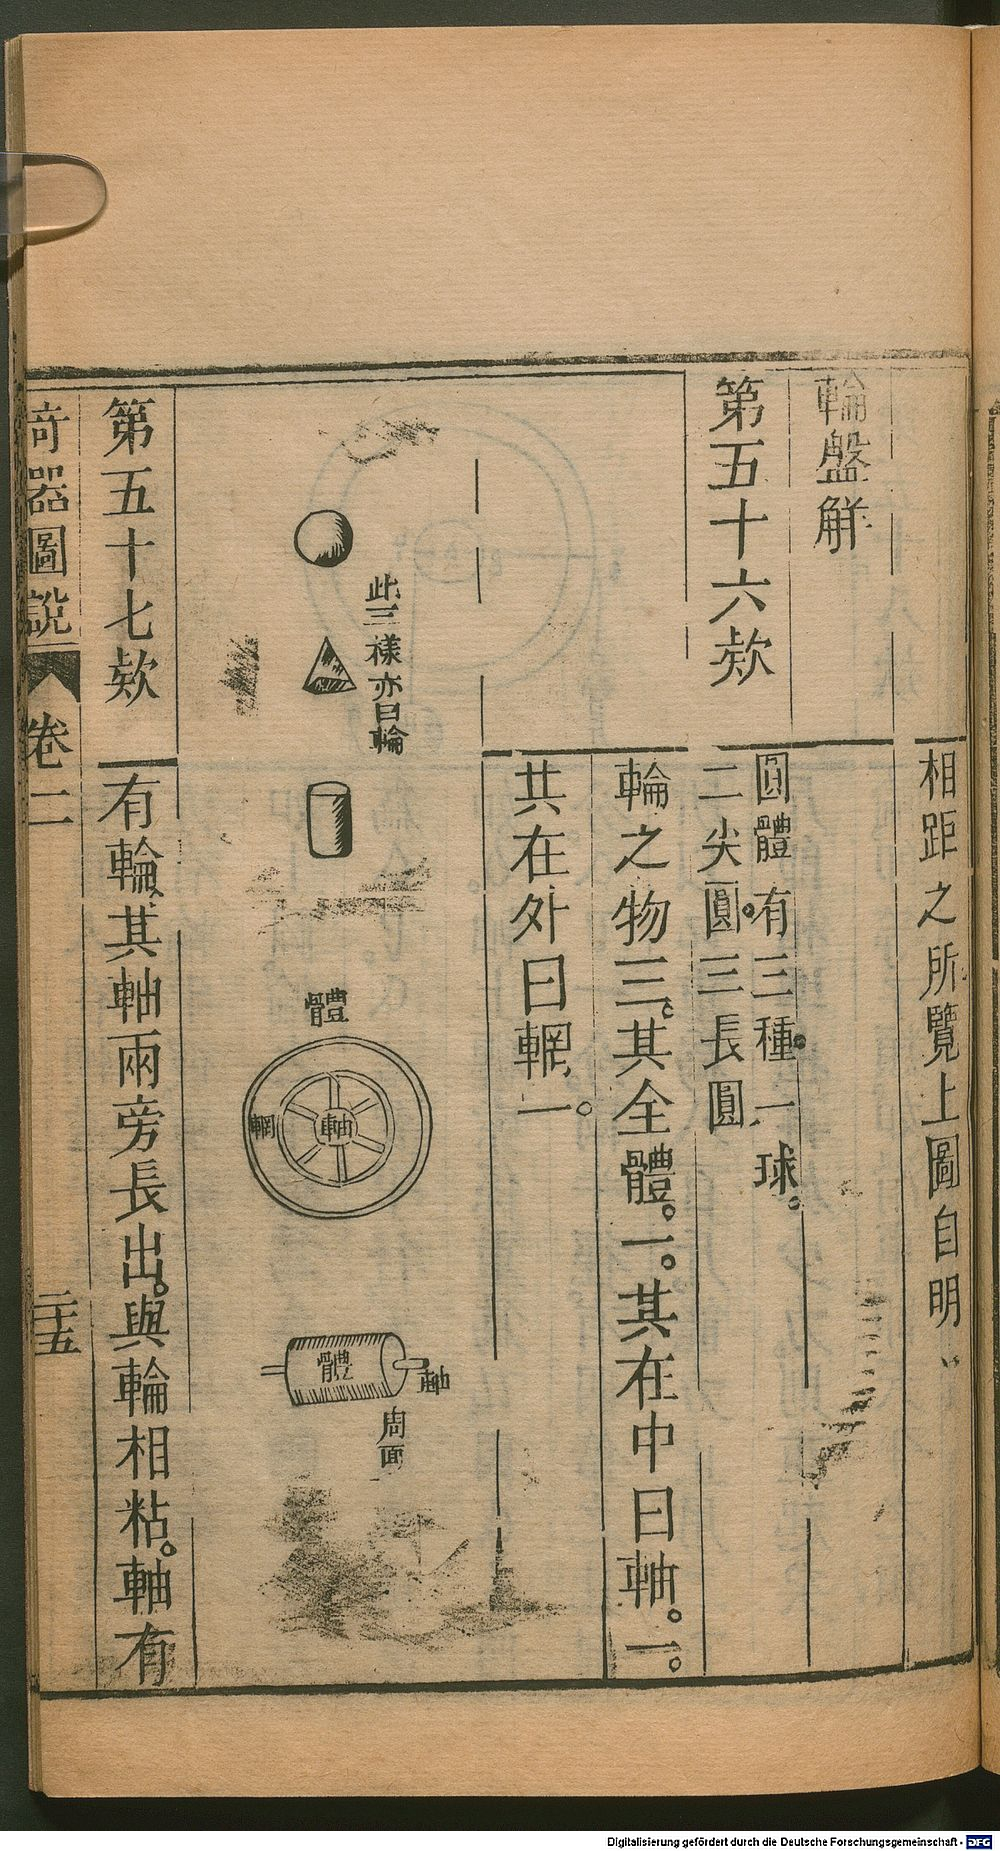 相距之所覽上圖自明
輪盤解
第五十六欵
圓體有三種一球
二尖圓三長圓
輪之物三其全體一其在中曰軸一
共在外曰輞一
此三樣亦曰輪
體
輞
軸
體
軸
周面
第五十七欵
有輪其軸兩旁長出與輪相粘軸有
奇器圖說
卷二
二十五
Digitalisierung gefördert durch die Deutsche Forschungsgemeinschaft - DFG